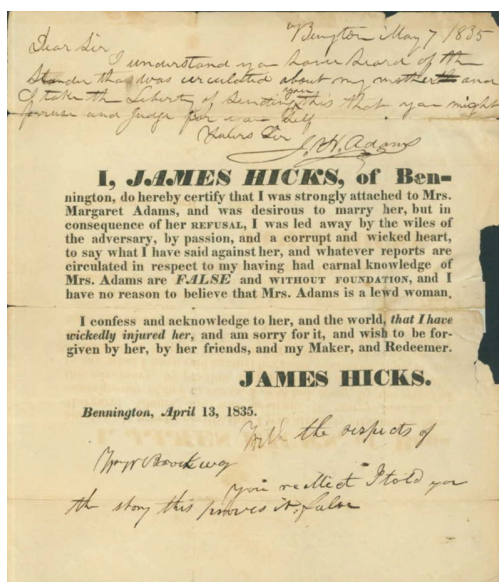 Bengton May 7 1835
Dear Sir
I understand you have heard of the
Slander that was circulated about my mother and
I take the Liberty of Sending you this that you might
peruse and judge for your Self
Yours Sir
J. H. Adams
I, JAMES HICKS, of Ben-
nington, do hereby certify that I was strongly attached to Mrs.
Margaret Adams, and was desirous to marry her, but in
consequence of her REFUSAL, I was led away by the wiles of
the adversary, by passion, and a corrupt and wicked heart,
to say what I have said against her, and whatever reports are
circulated in respect to my having had carnal knowledge of
Mrs. Adams are FALSE and WITHOUT FOUNDATION, and I
have no reason to believe that Mrs. Adams is a lewd woman.
I confess and acknowledge to her, and the world, that I have
wickedly injured her, and am sorry for it, and wish to be for-
given by her, by her friends, and my Maker, and Redeemer.
JAMES HICKS.
Bennington, April 13, 1835.
With the respects of
you recllect I told you
the story this proves it false